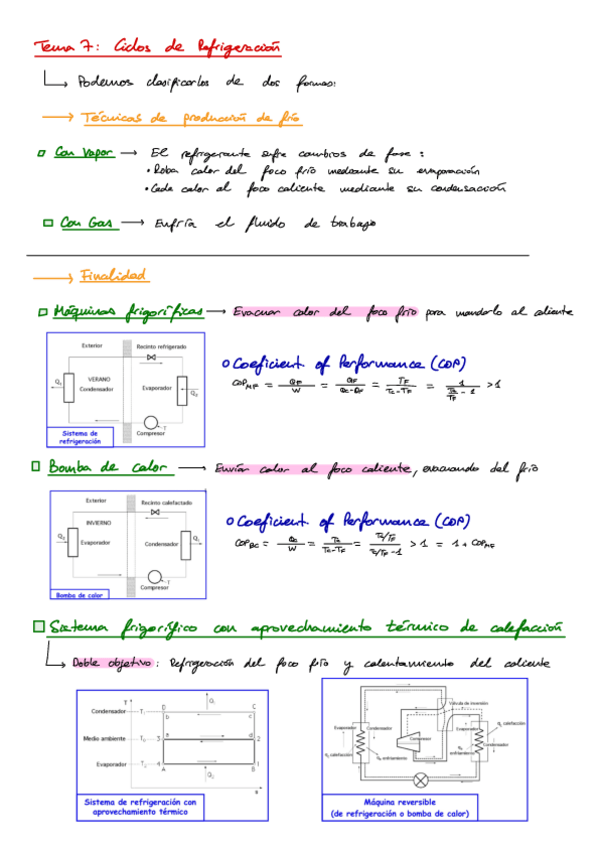 Tema 7: Ciclos de Refrigeración
↳ Podemos clasificarlos de dos formas:
→ Técnicas de producción de frío
Con Vapor → El refrigerante sufre cambios de fase:
• Roba calor del foco frío mediante su evaporación
• Cede calor al foco caliente mediante su condensación
Con Gas → Enfría el fluido de trabajo
→ Finalidad
Máquinas frigoríficas → Evacuar calor del foco frío para mandarlo al caliente
Exterior Recinto refrigerado
VERANO
Condensador Evaporador
Compresor
Sistema de
refrigeración
Coeficient of Performance (COP)
COP_MF = Q_F/W = Q_F/(Q_C-Q_F) = T_F/(T_C-T_F) = 1/(T_C/T_F - 1) > 1
Bomba de calor → Enviar calor al foco caliente, evacuando del frío
Exterior Recinto calefactado
INVIERNO
Evaporador Condensador
Compresor
Bomba de calor
Coeficient of Performance (COP)
COP_BC = Q_C/W = T_C/(T_C-T_F) = (T_C/T_F)/(T_C/T_F - 1) > 1 = 1 + COP_MF
Sistema frigorífico con aprovechamiento térmico de calefacción
↳ Doble objetivo: Refrigeración del foco frío y calentamiento del caliente
Condensador
Medio ambiente
Evaporador
Sistema de refrigeración con
aprovechamiento térmico
Válvula de inversión
Evaporador Condensador
Compresor
Evaporador
Condensador
q₁ calefacción
enfriamiento
enfriamiento
calefacción
Máquina reversible
(de refrigeración o bomba de calor)